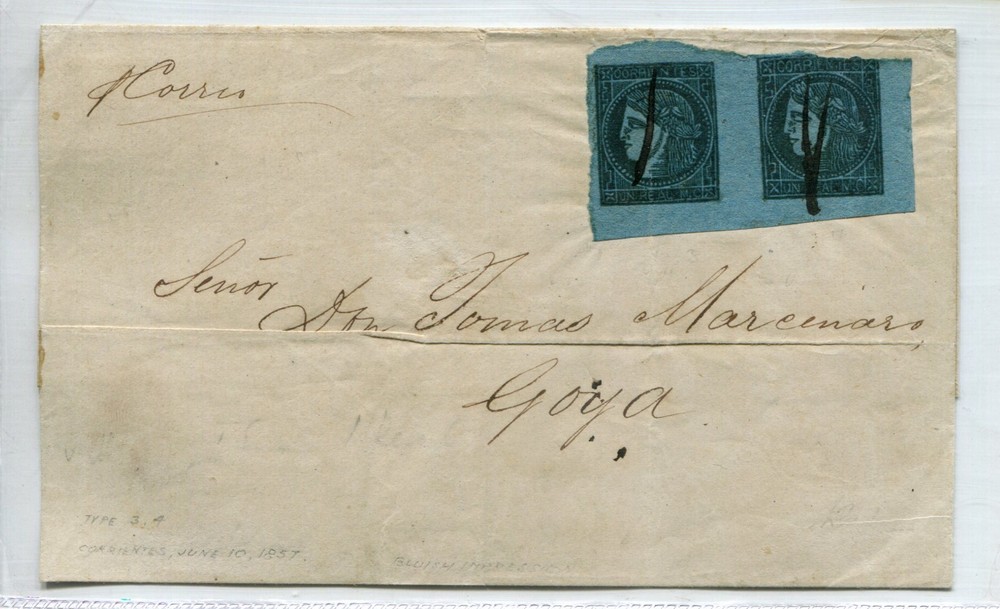 pCorreo
CORRIENTES
CORRIENTES
UN REAL M.C.
UN REAL M.C.
Señor
Don Tomas Marcenaro,
Goya
TYPE 3.4
CORRIENTES, JUNE 10, 1857.
BLUISH IMPRESSION